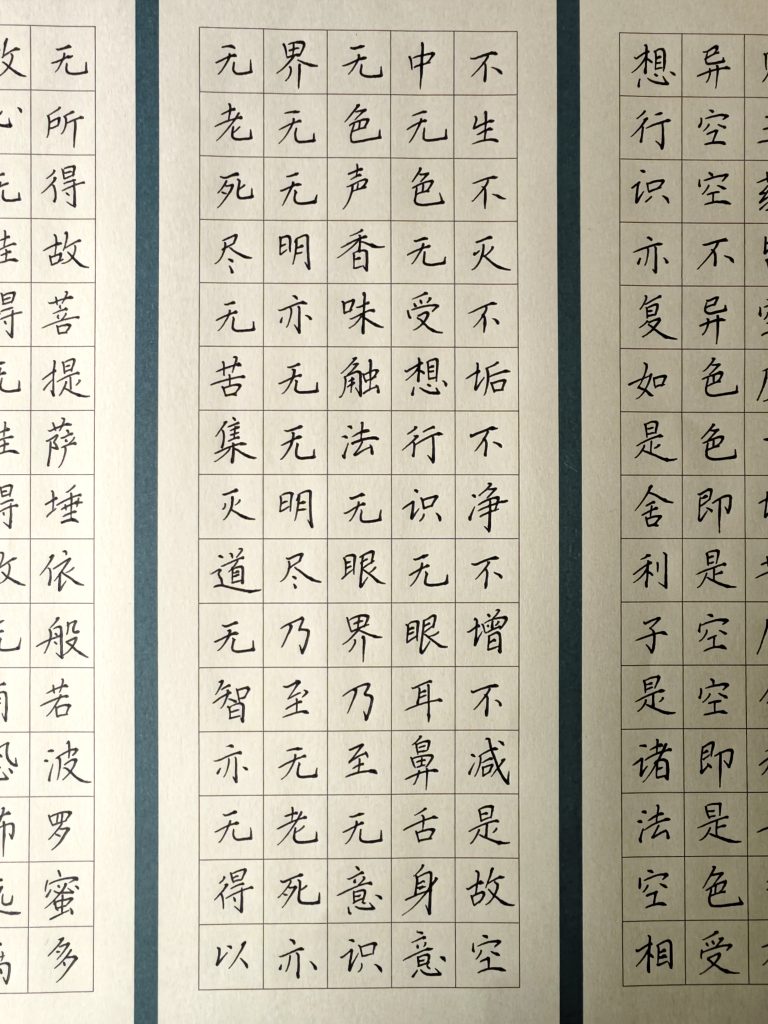 异空空不异色色即是空空即是色受
想行识亦复如是舍利子是诸法空相
不生不灭不垢不净不增不减是故空
中无色无受想行识无眼耳鼻舌身意
无色声香味触法无眼界乃至无意识
界无无明亦无无明尽乃至无老死亦
无老死尽无苦集灭道无智亦无得以
无所得故菩提萨埵依般若波罗蜜多